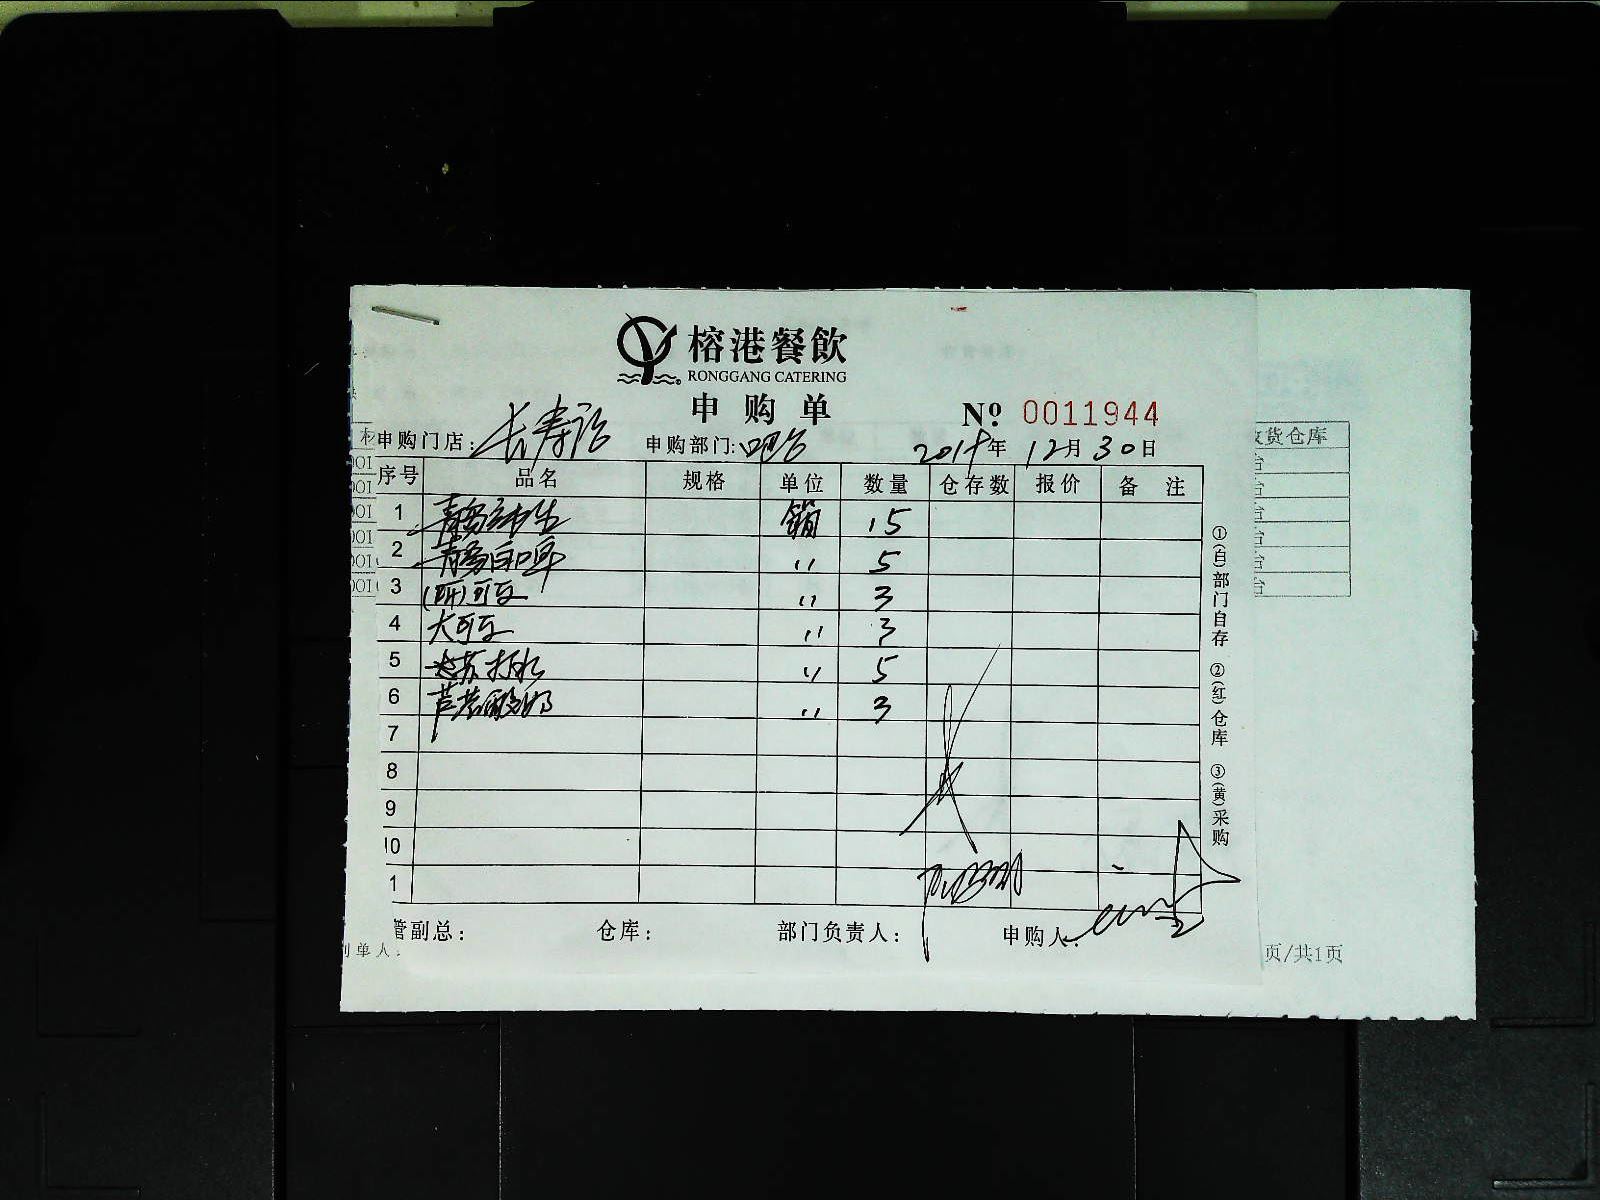 榕港餐飲
RONGGANG CATERING
申购单
№ 0011944
申购门店: 长寿路 申购部门: 吧台 2019年12月30日
序号 品名 规格 单位 数量 仓存数 报价 备注
1 青岛 箱 15
2 青岛白啤 〃 5
3 (听)可乐 〃 3
4 大可乐 〃 3
5 苏打水 〃 5
6 芦荟酸奶 〃 3
7
8
9
10
1
管副总: 仓库: 部门负责人: 申购人:
①(白)部门自存 ②(红)仓库 ③(黄)采购
货仓库
台
台
台
台
台
台
001
001
001
001
001
001
单人:
页/共1页